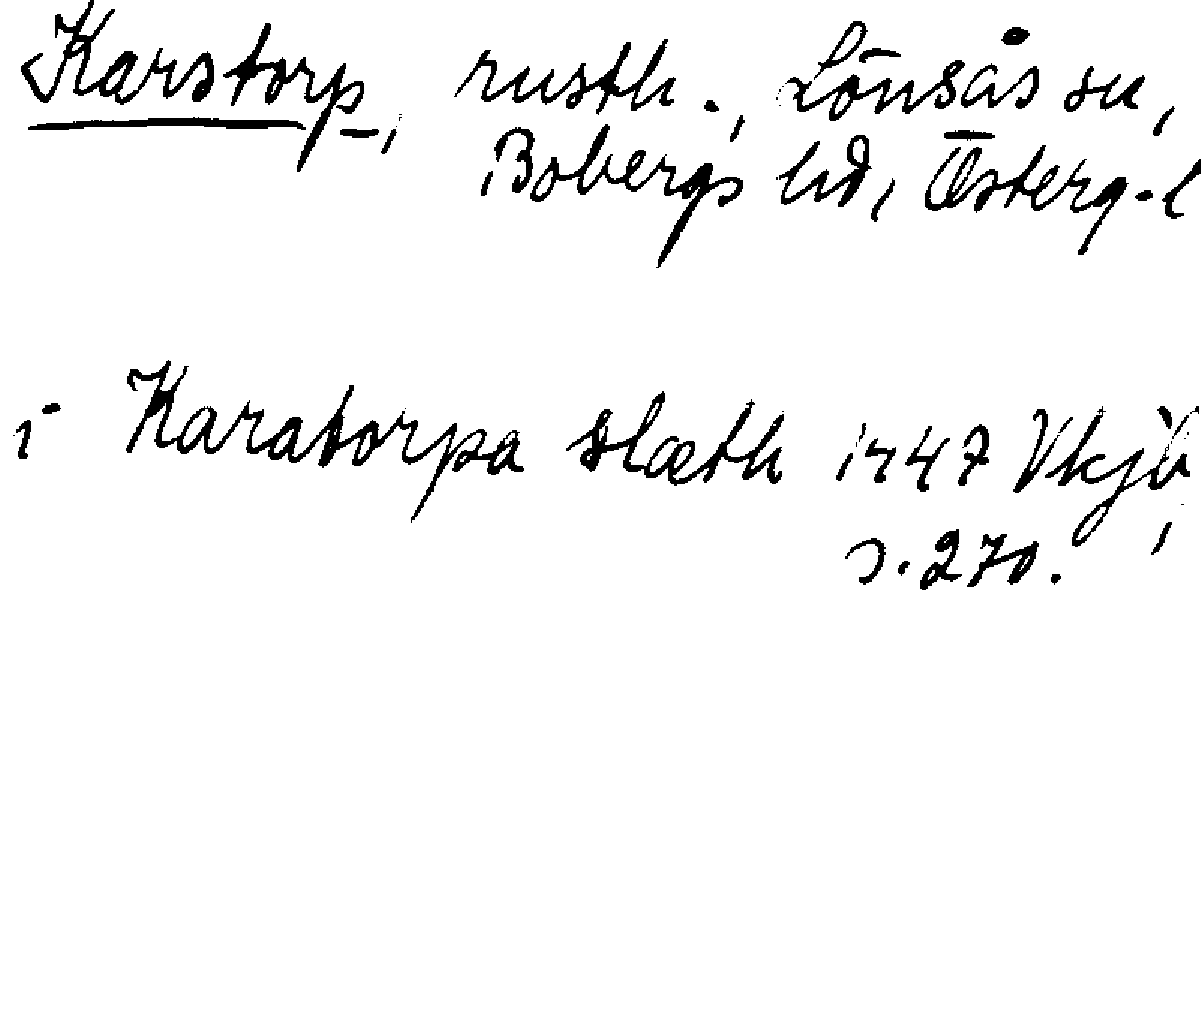 Karstorp, rusth., Lönsås sn,
Bobergs hd, Österg-l
i Karatorpa slæth 1447 Vkjb,
s. 270.